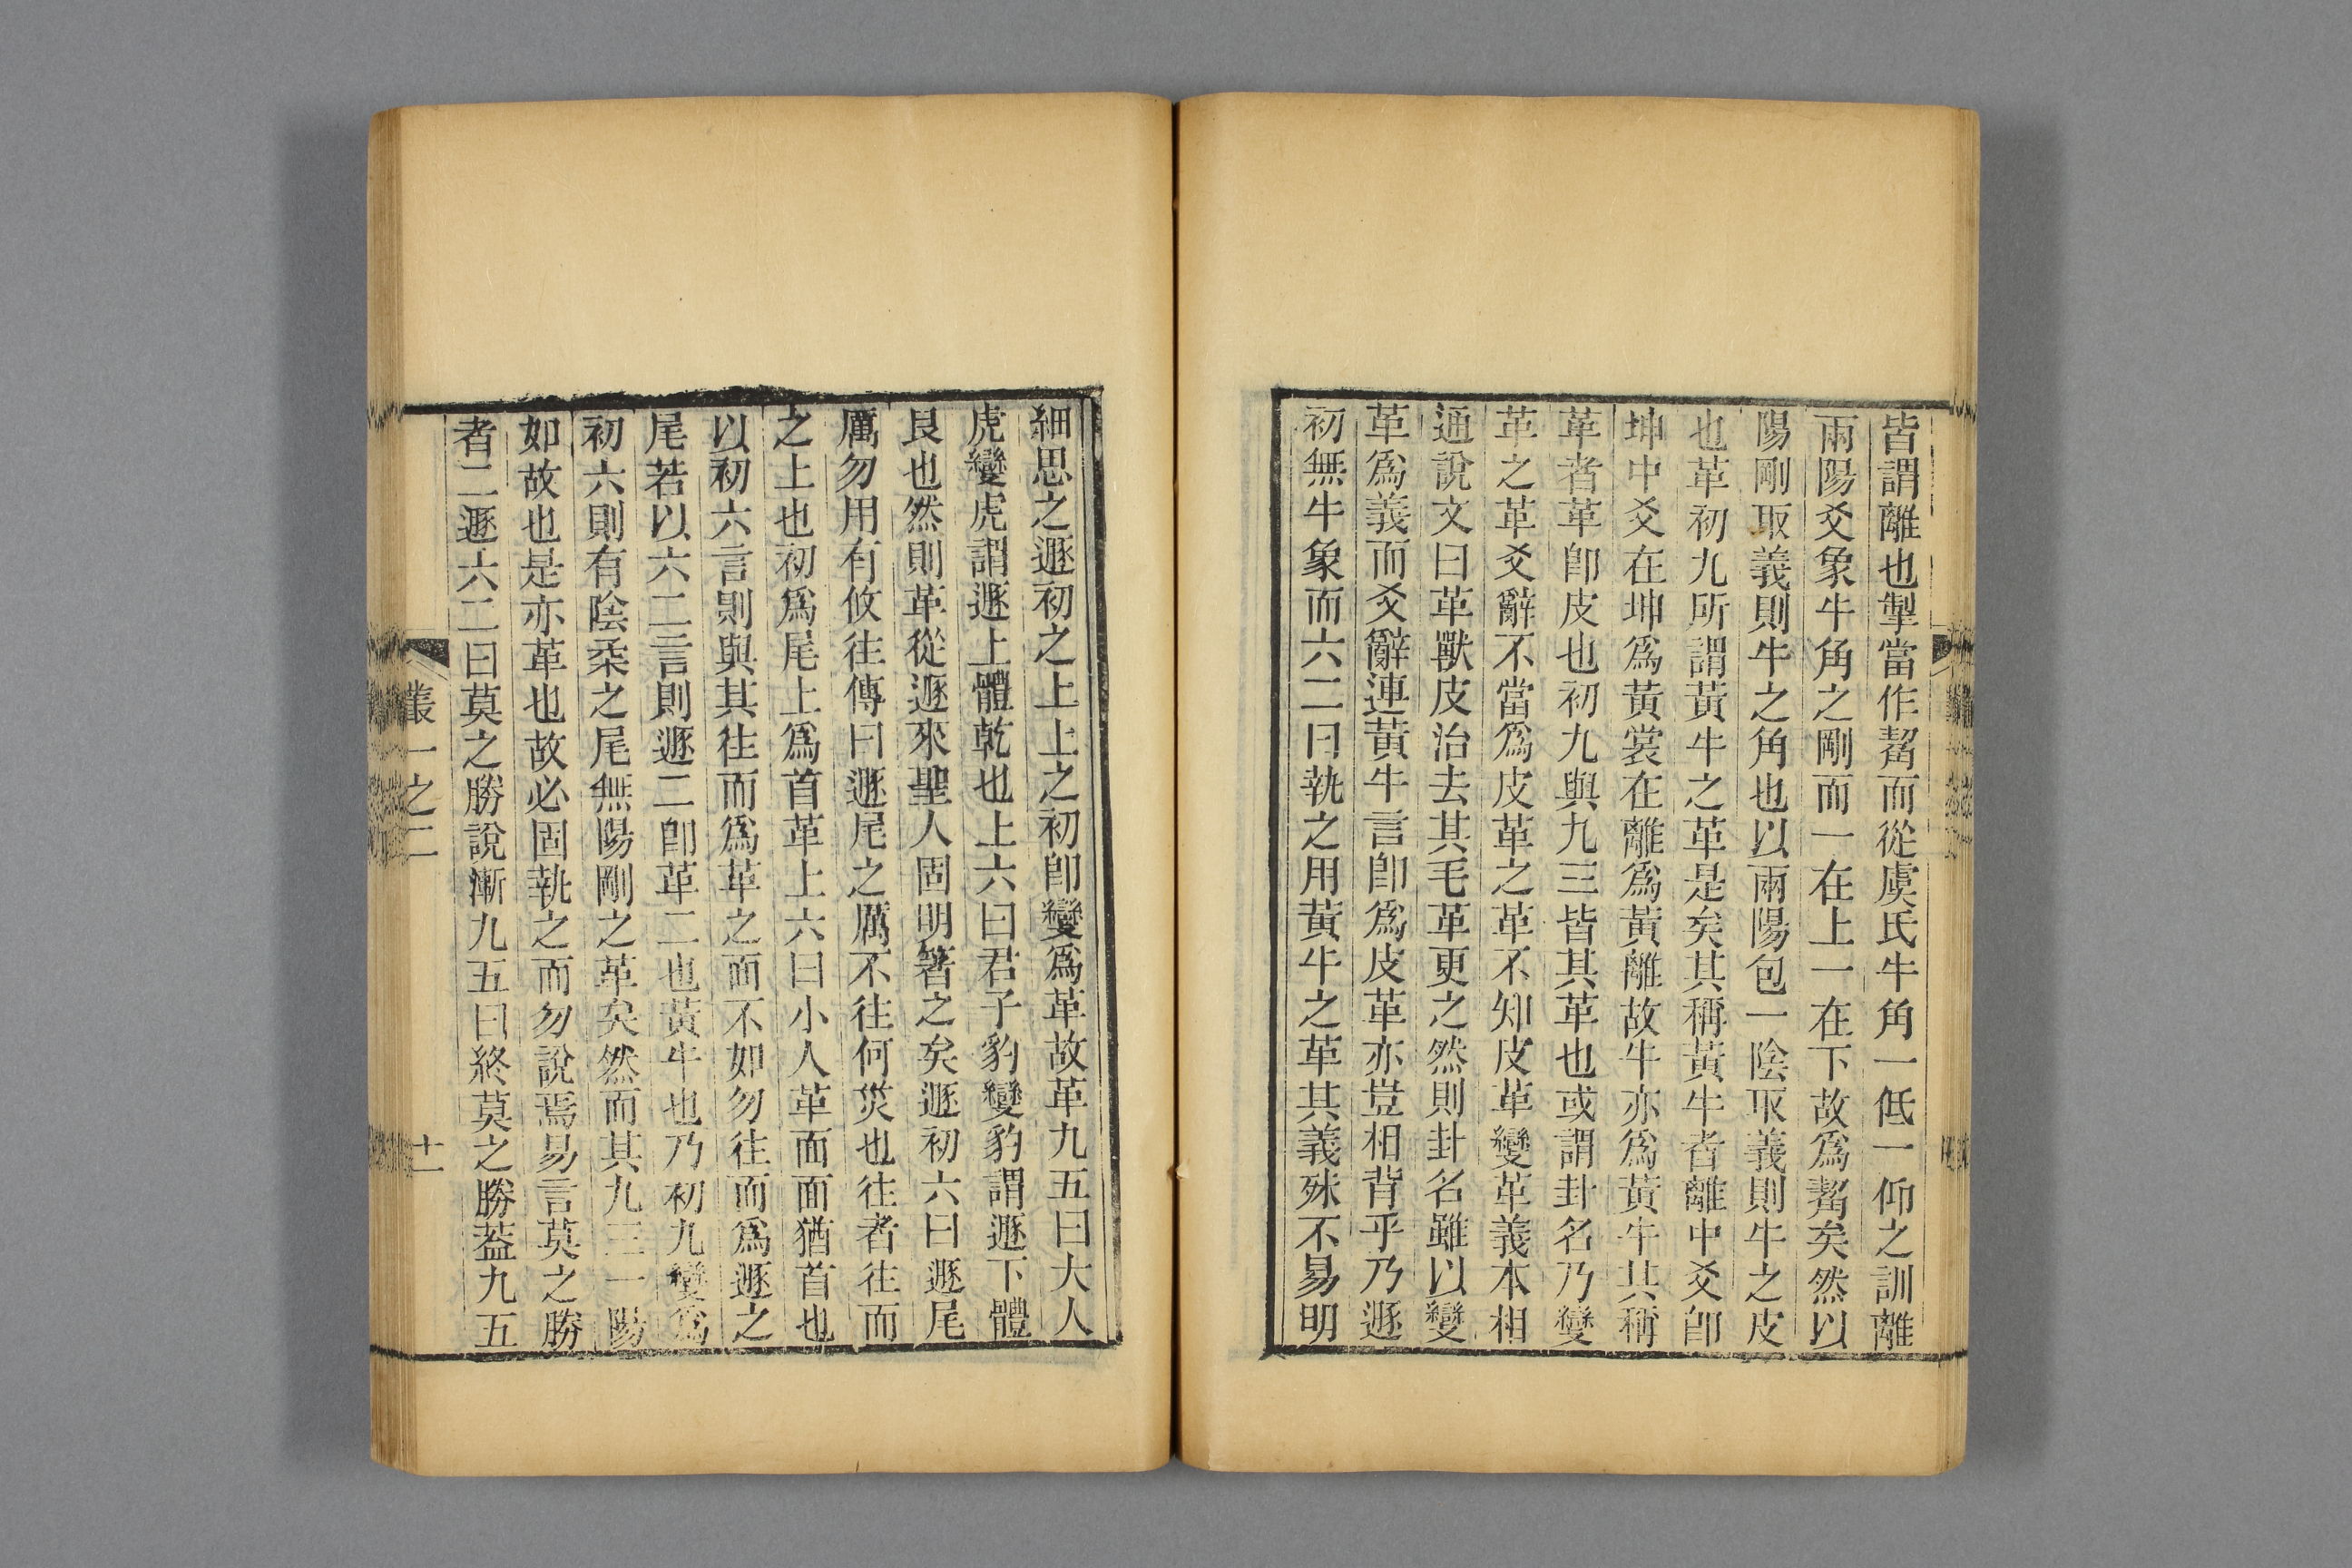 皆謂離也掣當作觢而從虞氏牛角一低一仰之訓離
兩陽爻象牛角之剛而一在上一在下故爲觢矣然以
陽剛取義則牛之角也以兩陽包一陰取義則牛之皮
也革初九所謂黃牛之革是矣其稱黃牛者離中爻卽
坤中爻在坤爲黃裳在離爲黃離故牛亦爲黃牛其稱
革者革卽皮也初九與九三皆其革也或謂卦名乃變
革之革爻辭不當爲皮革之革不知皮革變革義本相
通說文曰革獸皮治去其毛革更之然則卦名雖以變
革爲義而爻辭連黃牛言卽爲皮革亦豈相背乎乃遯
初無牛象而六二曰執之用黃牛之革其義殊不易明
細思之遯初之上上之初卽變爲革故革九五曰大人
虎變虎謂遯上體乾也上六曰君子豹變豹謂遯下體
艮也然則革從遯來聖人固明箸之矣遯初六曰遯尾
厲勿用有攸往傳曰遯尾之厲不往何災也往者往而
之上也初爲尾上爲首革上六曰小人革面面猶首也
以初六言則與其往而爲革之面不如勿往而爲遯之
尾若以六二言則遯二卽革二也黃牛也乃初九變爲
初六則有陰柔之尾無陽剛之革矣然而其九三一陽
如故也是亦革也故必固執之而勿說焉易言莫之勝
者二遯六二曰莫之勝說漸九五曰終莫之勝蓋九五
叢一之二
十一